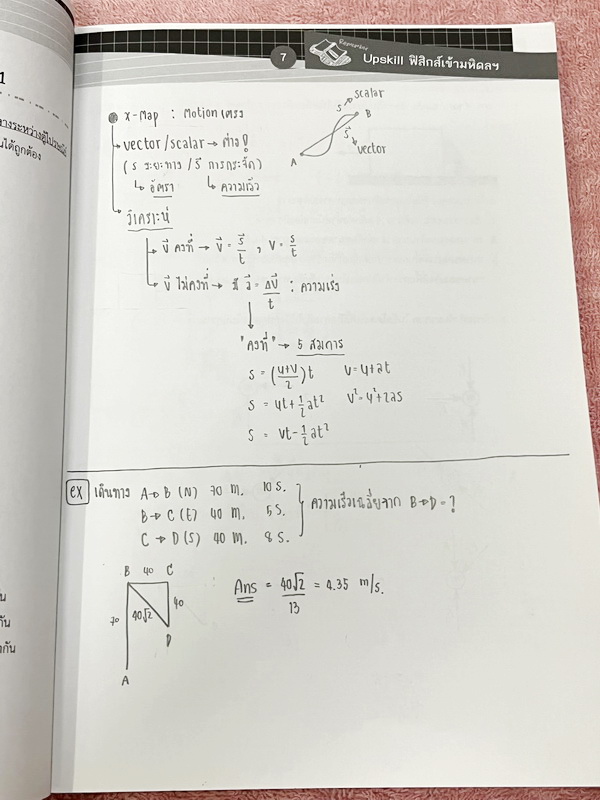 7
Remarker
Upskill ฟิสิกส์เข้ามหิดลฯ
1
างระหว่างคู่ไปรษณีย์
นได้ถูกต้อง
x-Map : Motion ตรง
S scalar
A B
s⃗ vector
vector/scalar → ต่าง ?
(s ระยะทาง / s⃗ การกระจัด)
↳ อัตรา ↳ ความเร็ว
วิเคราะห์
v⃗ คงที่ → v⃗ = s⃗/t , v = s/t
v⃗ ไม่คงที่ → มี a⃗ = Δv⃗/t : ความเร่ง
"คงที่" → 5 สมการ
s = (u+v/2)t v = u+at
s = ut+1/2at² v² = u²+2as
s = vt-1/2at²
ex เดินทาง A→B (N) 70 m. 10 s.
B→C (E) 40 m. 5 s.
C→D (S) 40 m. 8 s.
ความเร็วเฉลี่ยจาก B→D = ?
B 40 C
70 40√2 40
D
A
Ans = 40√2/13 = 4.35 m/s.
น
กัน
ากัน